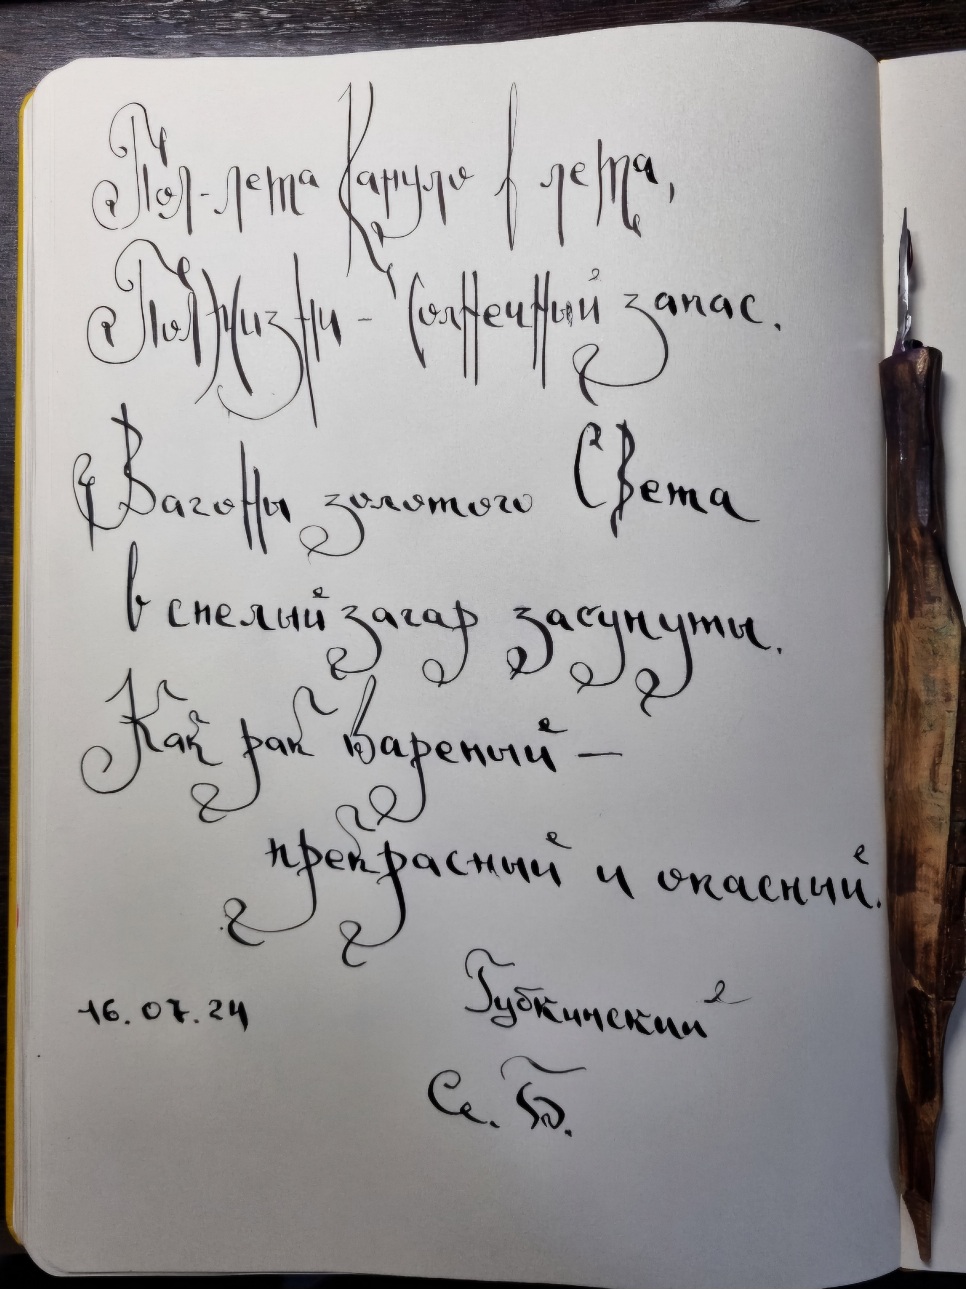 Пол-лета Кануло в лета,
Пол Жизни - Солнечный запас.
Вагоны золотого Света
в спелый загар засунуты.
Как рак вареный —
прекрасный и опасный.
16.07.24
Губкинский
Се. Б.